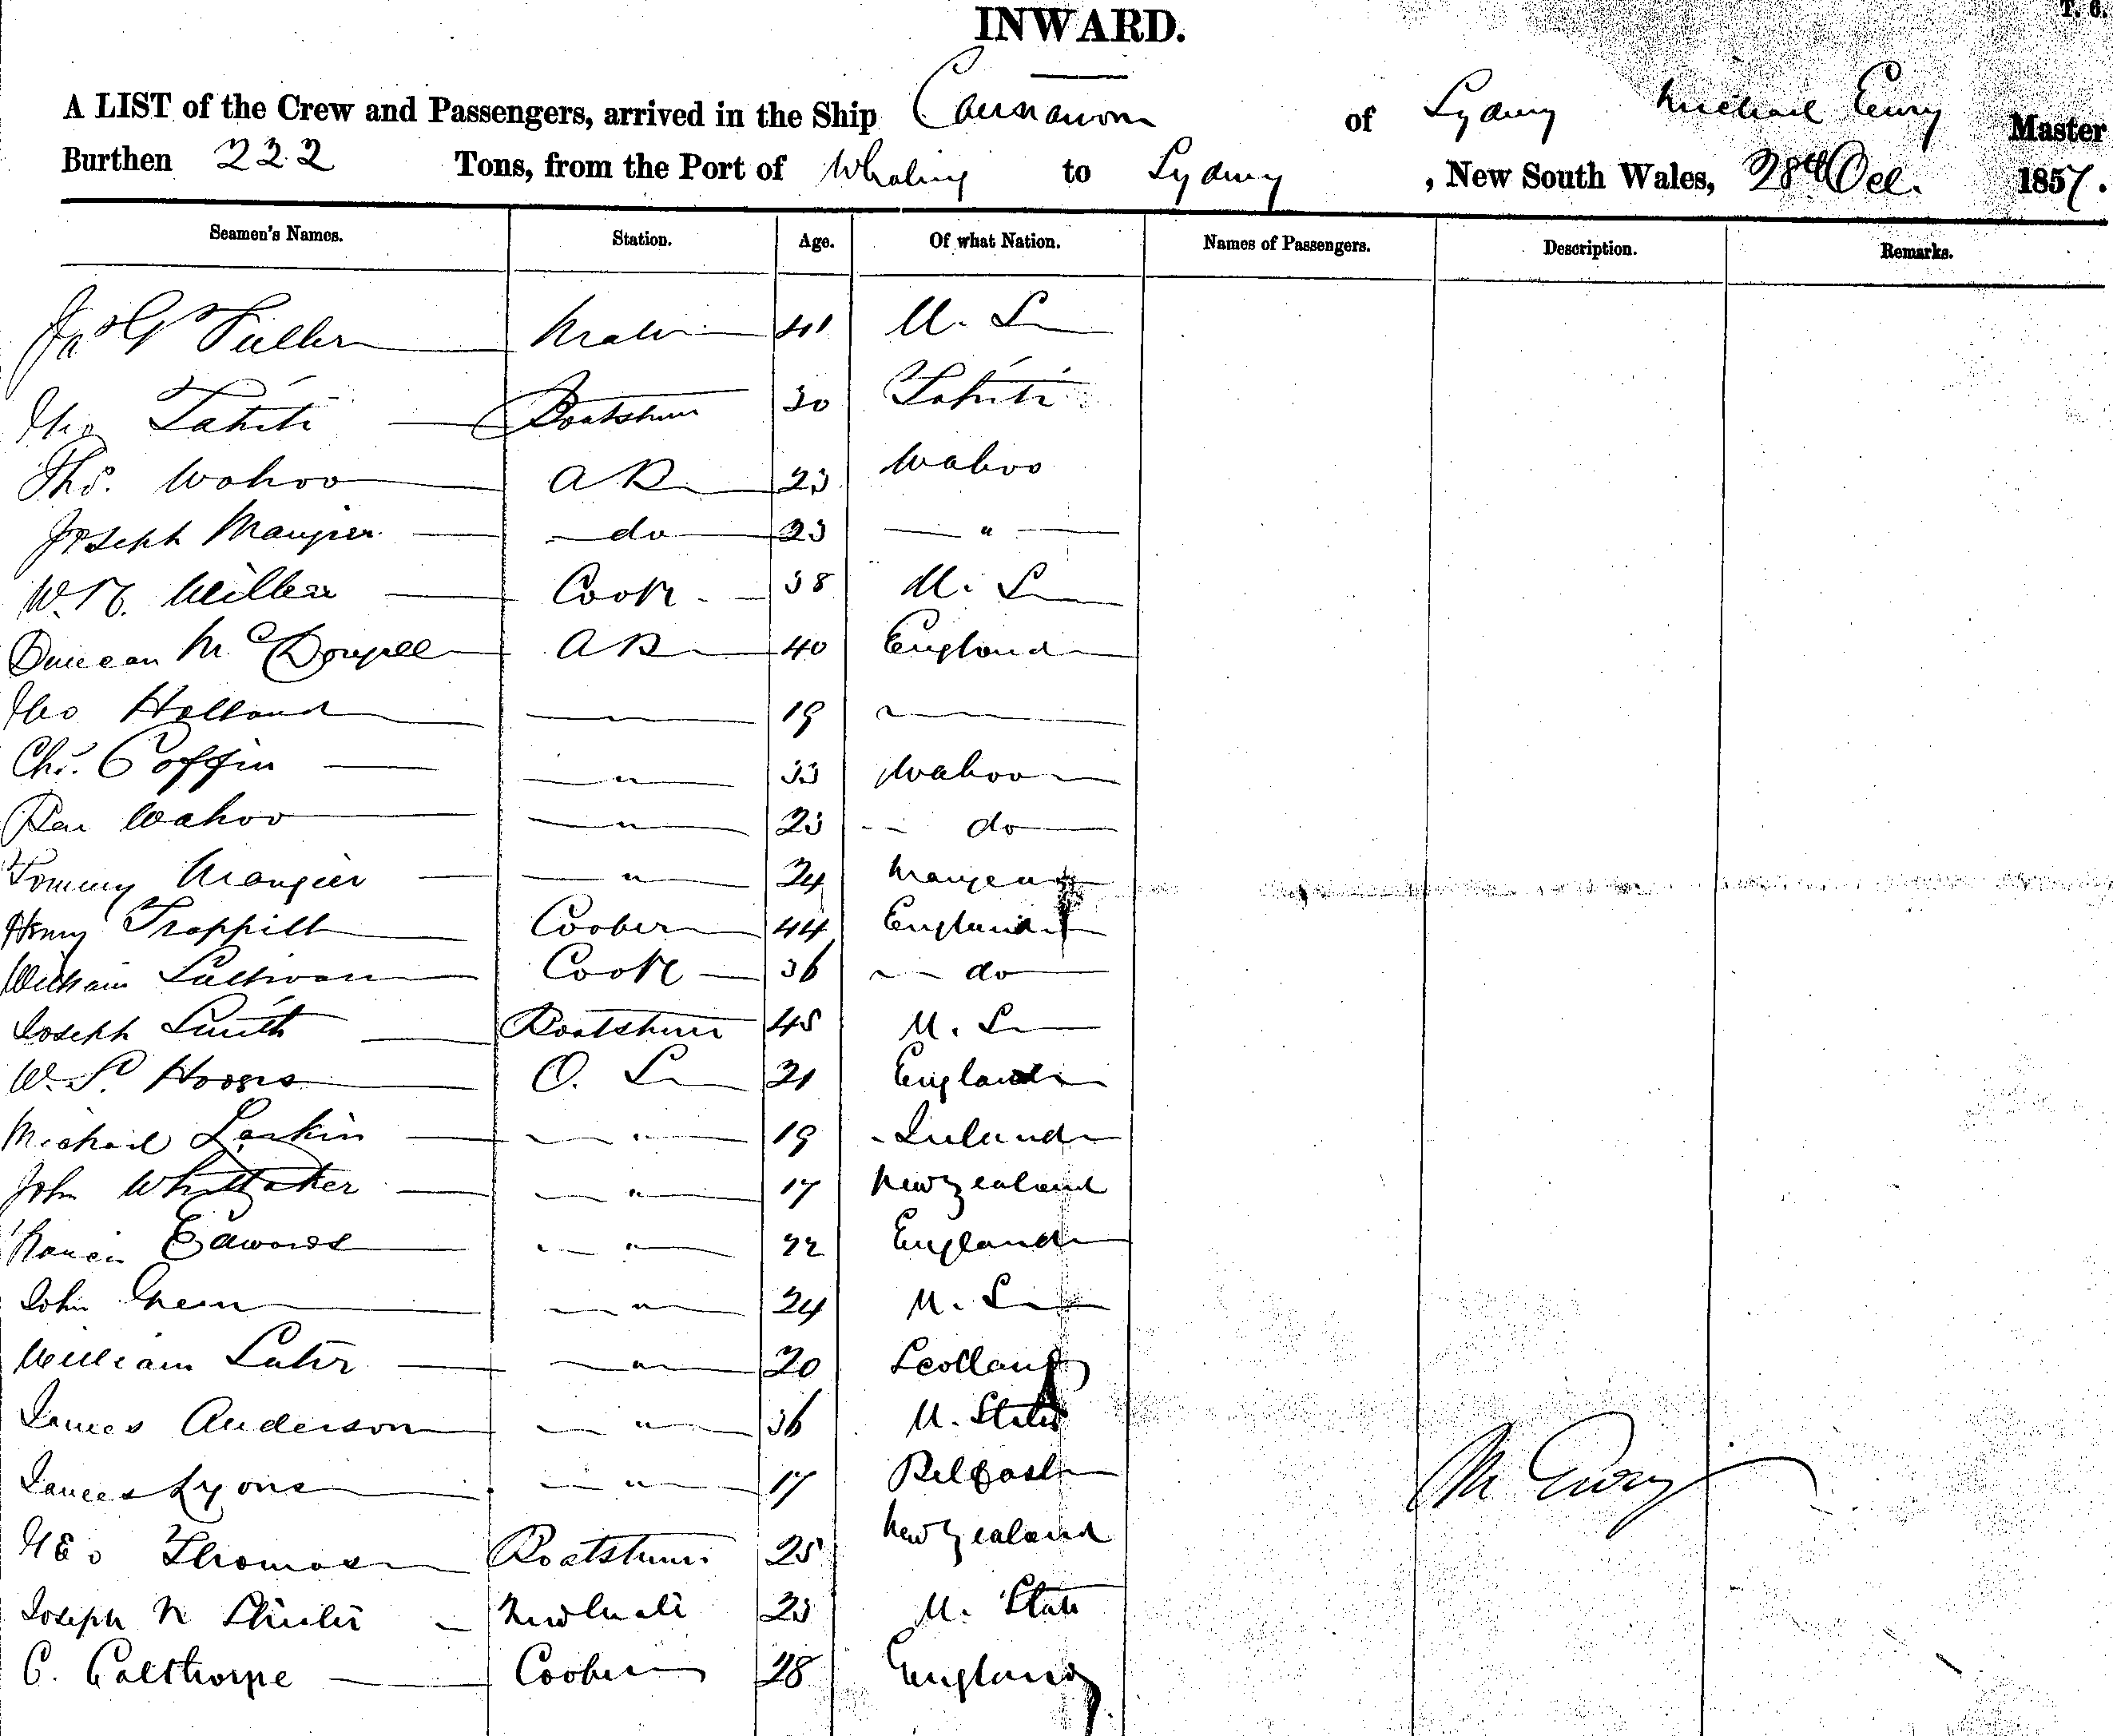 T. 6.
INWARD.
A LIST of the Crew and Passengers, arrived in the Ship Carnarvon of Sydney Michael Ewry Master
Burthen 222 Tons, from the Port of Whaling to Sydney, New South Wales, 28th Oct. 1857.
Seamen's Names. Station. Age. Of what Nation. Names of Passengers. Description. Remarks.
Jas G Fuller Mate 41 U. S
Geo Tahiti Boatsteer 30 Tahiti
Thos. Wahoo AB 23 Wahoo
Joseph Mangier do 23 "
W. H. Miller Cook 38 U. S
Duncan McDougall AB 40 England
Geo Holland 19
Chs. Coffin " 33 Wahoo
Ben Wahoo " 23 do
Tommy Mangier " 24 Mangea
Henry Trappitt Cooper 44 England
William Sullivan Cook 36 do
Joseph Smith Boatsteer 45 U. S
W. S. O. S 21 England
Michael Larkin " 19 Ireland
John Whittaker " 17 New Zealand
Francis Edwards " 22 England
John Green " 24 U. S
William " 20 Scotland
James Anderson " 36 U. States
James Lyons " 17 Belfast
M Ewry
Geo Thomas Boatsteer 25 New Zealand
Joseph N 23 U. State
C. Calthorpe Cooper 28 England